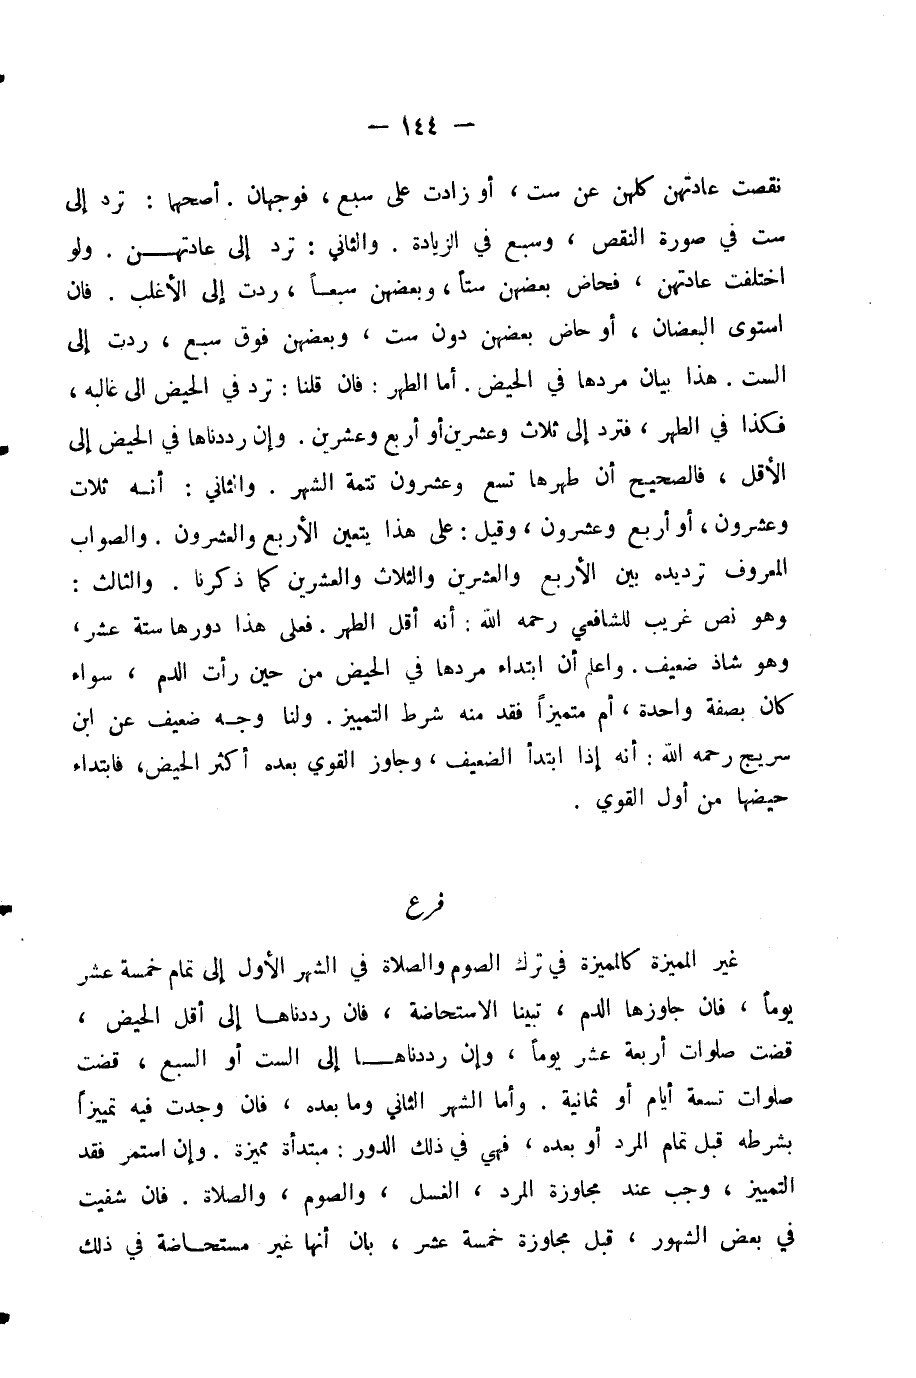 — ١٤٤ —
نقصت عادتهن كلهن عن ست ، أو زادت على سبع ، فوجهان . أصحها : ترد إلى
ست في صورة النقص ، وسبع في الزيادة . والثاني : ترد إلى عادتهـــن . ولو
اختلفت عادتهن ، فحاض بعضهن ستاً ، وبعضهن سبعـاً ، ردت إلى الأغلب . فان
استوى البعضان ، أو حاض بعضهن دون ست ، وبعضهن فوق سبع ، ردت إلى
الست . هذا بيان مردها في الحيض . أما الطهر : فان قلنا : ترد في الحيض الى غالبه ،
فكذا في الطهر ، فترد إلى ثلاث وعشرين أو أربع وعشرين . وإن رددناها في الحيض إلى
الأقل ، فالصحيح أن طهرها تسع وعشرون تتمة الشهر . والثاني : أنـه ثلاث
وعشرون ، أو أربع وعشرون ، وقيل : على هذا يتعين الأربع والعشرون . والصواب
المعروف ترديده بين الأربع والعشرين والثلاث والعشرين كما ذكرنا . والثالث :
وهو نص غريب للشافعي رحمه الله : أنه أقل الطهر . فعلى هذا دورها ستة عشر ،
وهو شاذ ضعيف . واعلم أن ابتداء مردها في الحيض من حين رأت الدم ، سواء
كان بصفة واحدة ، أم متميزاً فقد منه شرط التمييز . ولنا وجـه ضعيف عن ابن
سريج رحمه الله : أنه إذا ابتدأ الضعيف ، وجاوز القوي بعده أكثر الحيض ، فابتداء
حيضها من أول القوي .
فرع
غير المميزة كالمميزة في ترك الصوم والصلاة في الشهر الأول إلى تمام خمسة عشر
يوماً ، فان جاوزها الدم ، تبينا الاستحاضة ، فان رددناهـا إلى أقل الحيض ،
قضت صلوات أربعة عشر يوماً ، وإن رددناهـــا إلى الست أو السبع ، قضت
صلوات تسعة أيام أو ثمانية . وأما الشهر الثاني وما بعده ، فان وجدت فيه تمييزاً
بشرطه قبل تمام المرد أو بعده ، فهي في ذلك الدور : مبتدأة مميزة . وإن استمر فقد
التمييز ، وجب عند مجاوزة المرد ، الغسل ، والصوم ، والصلاة . فان شفيت
في بعض الشهور ، قبل مجاوزة خمسة عشر ، بان أنها غير مستحـاضة في ذلك